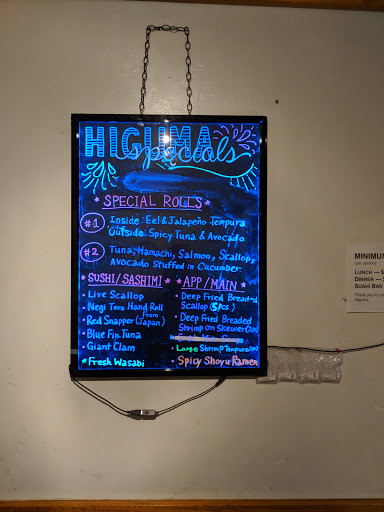 HIGUMA
specials
* SPECIAL ROLLS *
#1 Inside: Eel & Jalapeño Tempura
Outside: Spicy Tuna & Avocado
#2 Tuna, Hamachi, Salmon, Scallop,
Avocado Stuffed in Cucumber
* SUSHI/SASHIMI *
• Live Scallop
• Negi Toro Hand Roll
• Red Snapper from (Japan)
• Blue Fin Tuna
• Giant Clam
* Fresh Wasabi
* APP/MAIN *
• Deep Fried Breaded
Scallop (5pcs.)
• Deep Fried Breaded
Shrimp on Skewer
• Large Shrimp Tempura
• Spicy Shoyu Ramen
MINIMUM
(per person)
LUNCH --- $
DINNER ---
SUSHI BAR
Thank you for
Higuma